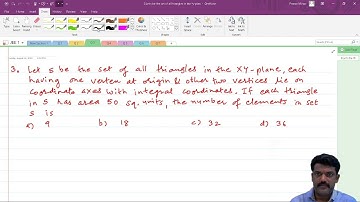 3. Let S be the set of all triangles in the XY-plane, each
having one vertex at origin & other two vertices lie on
coordinate axes with integral coordinates. If each triangle
in S has area 50 sq. units, the number of elements in set
S is
a) 9 b) 18 c) 32 d) 36